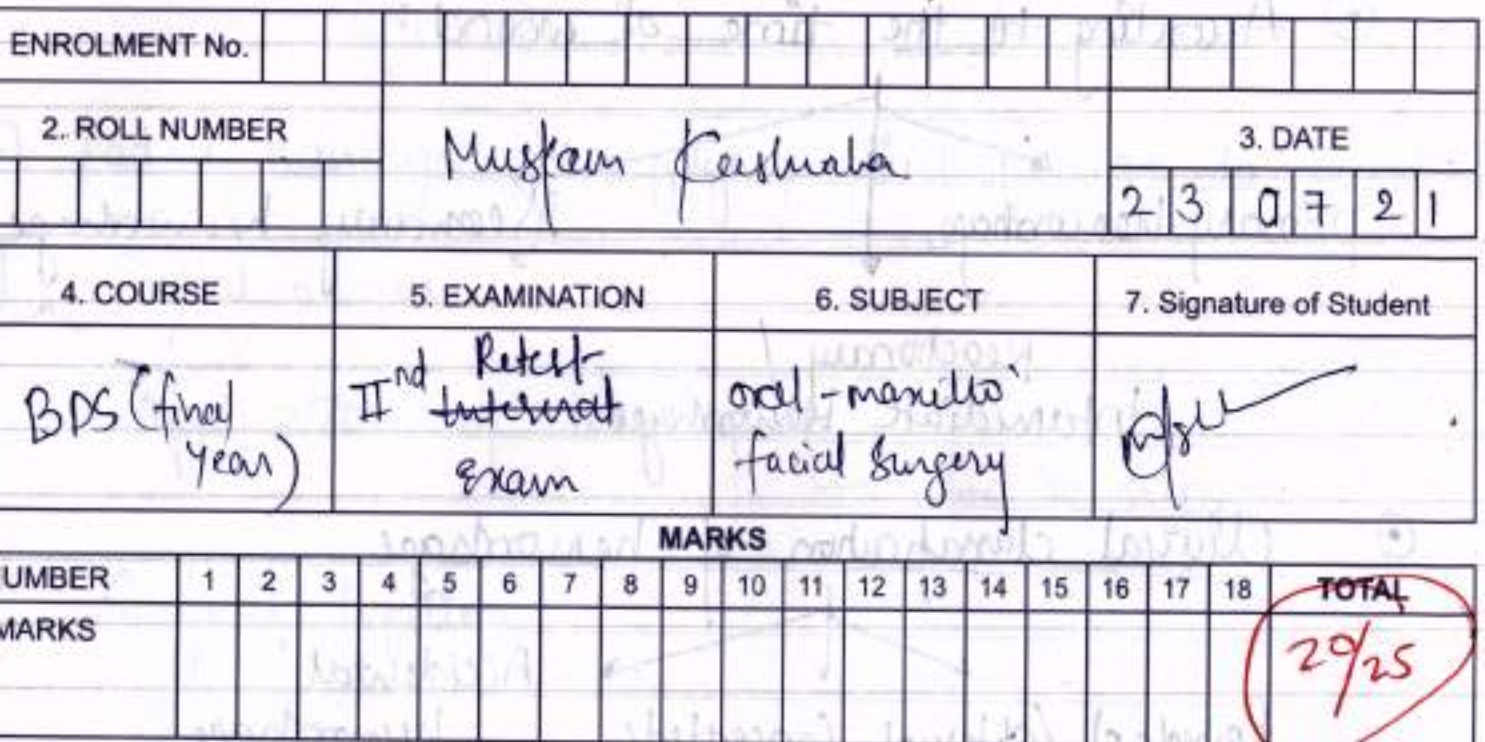 ENROLMENT No.
2. ROLL NUMBER
Muskan Kushwaha
3. DATE
23 07 21
4. COURSE
5. EXAMINATION
6. SUBJECT
7. Signature of Student
BDS (final
year)
IInd Retest
Internal
Exam
oral-maxillo
facial Surgery
MARKS
UMBER 1 2 3 4 5 6 7 8 9 10 11 12 13 14 15 16 17 18 TOTAL
MARKS
20/25